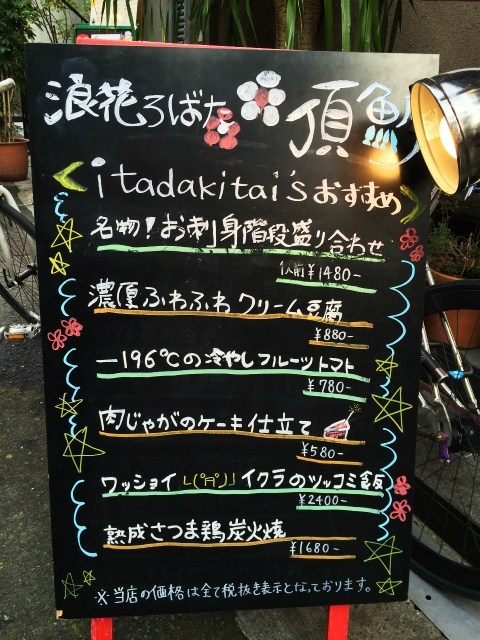 浪花ろばた 頂鯛
itadakitai'sおすすめ
名物!お刺身階段盛り合わせ
1人前¥1480-
濃厚ふわふわクリーム豆腐
¥880-
-196℃の冷やしフルーツトマト
¥780-
肉じゃがのケーキ仕立て
¥580-
ワッショイ └(°Д°)┘ イクラのツッコミ飯
¥2400-
熟成さつま鶏炭火焼
¥1680-
※当店の価格は全て税抜き表示となっております。